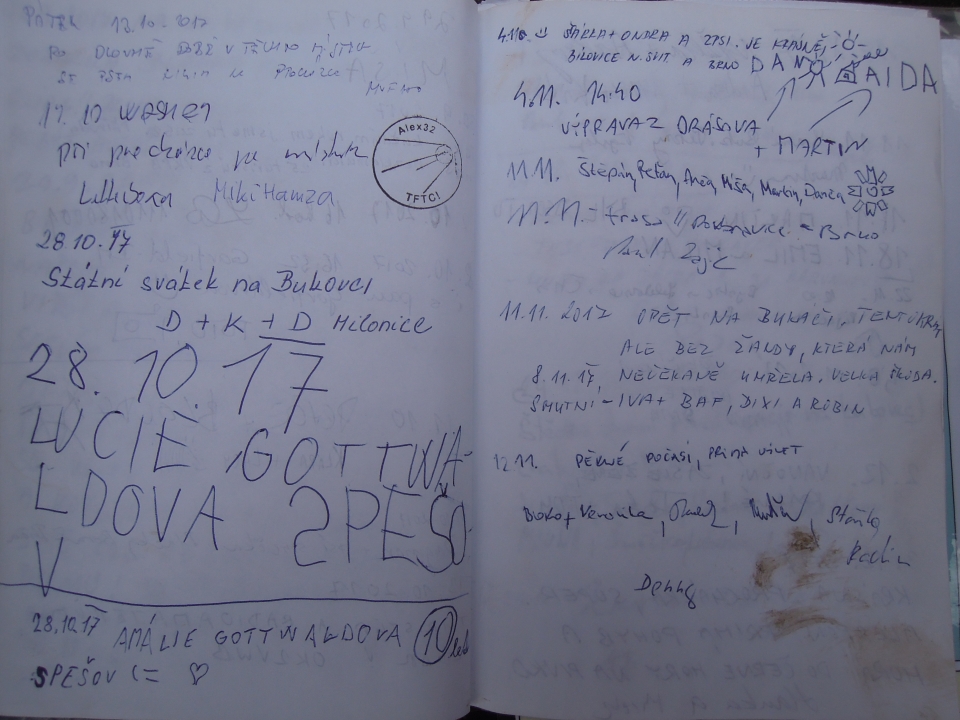 PÁTEK 13.10.2017
PO DLOUHÉ DOBĚ V TĚCHTO MÍSTECH
SE
17. 10
při procházce
Miki Hamza
Alex32
TFTC!
28 10. 17
Státní svátek na Bukovci
D + K + D Milonice
28. 10. 17
LUCIE GOTTWA-
LDOVA SPEŠO-
V
28.10.17 AMÁLIE GOTTWALDOVA 10 let
SPEŠOV (= ♡
4.11. ŠÁRKA + ONDRA A ZPSI. JE KRÁSNĚ,
BÍLOVICE N. SVIT. A BRNO DAN AIDA
4.11. 14:40
VÝPRAVA Z DRÁSOVA
+ MARTIN
11.11. Štěpán, Péťa, Anča, Míša, Martin, Danča
11.11. - trasa " - Brno
Pavel Zajíc
11.11.2017 OPĚT NA BUKAČI, TENTOKRÁT
ALE BEZ ŽANDY, KTERÁ NÁM
8.11.17, NEČEKANĚ UMŘELA. VELKÁ ŠKODA.
SMUTNÍ - IVA + BAF, DIXI A ROBIN
12.11. PĚKNÉ POČASÍ, PRIMA VÝLET
Veronika, Radek, Martin, Staňka
Radim
Denny